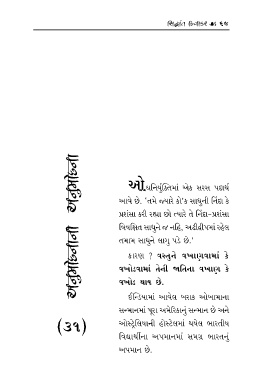 સિદ્ધાંત
અનુમોદનાની અનુમોદના
(૩૧)
ઓ.ઘનિર્યુક્તિમાં એક સરસ પદાર્થ
આવે છે. 'તમે જ્યારે કો'ક સાધુની નિંદા કે
પ્રશંસા કરી રહ્યા છો ત્યારે તે નિંદા-પ્રશંસા
વિવક્ષિત સાધુને જ નહિ, અઢીદ્વીપમાં રહેલ
તમામ સાધુને લાગુ પડે છે.'
કારણ ? વસ્તુને વખાણવામાં કે
વખોડવામાં તેની જાતિના વખાણ કે
વખોડ થાય છે.
ઈન્ડિયામાં આવેલ બરાક ઓબામાના
સન્માનમાં પૂરા અમેરિકાનું સન્માન છે અને
ઓસ્ટ્રેલિયાની હોસ્ટેલમાં થયેલ ભારતીય
વિદ્યાર્થીના અપમાનમાં સમગ્ર ભારતનું
અપમાન છે.